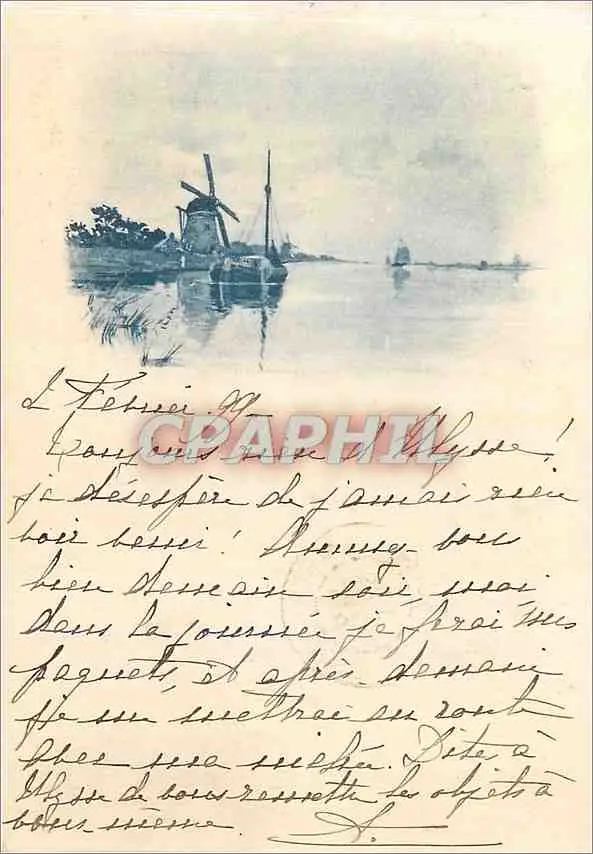 2 Février 99
Toujours rien d'Ulysse!
CPARHIL
je désespère de jamais rien
voir venir! Amusez-vous
bien demain soir, moi,
dans la journée je ferai mes
paquets, et après demain
je me mettrai en route
avec ma nièce. Dites à
Ulysse de vous remettre les objets à
vous-même. A.